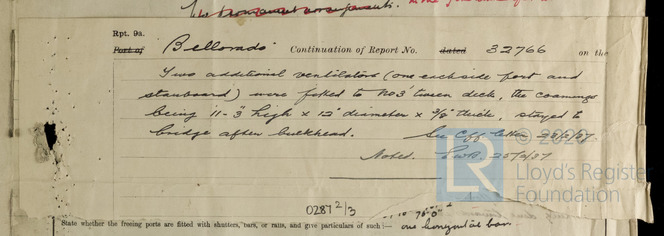 Rpt. 9a.
Port of Continuation of Report No. dated 32766 on the
Two additional ventilators (one each side port and
starboard) were fitted to No3 'tween deck, the coamings
being 11'-3" high x 12" diameter x 3/8" thick, stayed to
bridge after bulkhead. See Cff letter 22/2/27.
Noted. 25/2/27
© 20
LR Lloyd's Register
Foundation
0287 2/3
State whether the freeing ports are fitted with shutters, bars, or rails, and give particulars of such :— one horizontal bar.